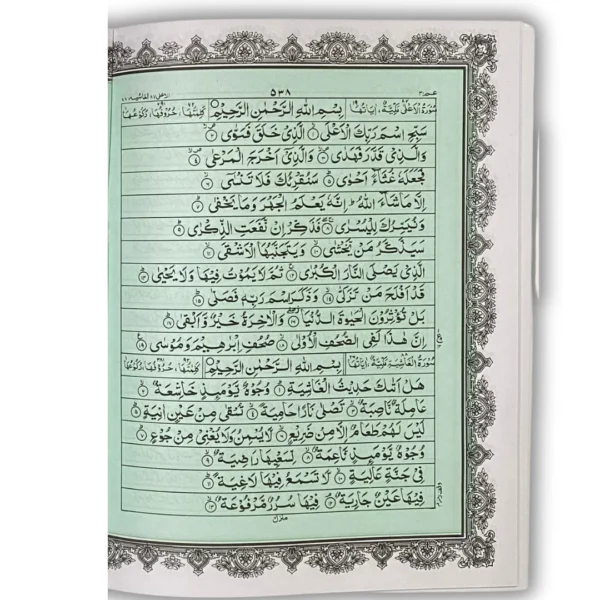 عم ٣٠ ٥٣٨ الاعلى ٨٧ الغاشية ٨٨
سُوْرَةُ الْاَعْلٰى مَكِّيَّةٌ اٰيَاتُهَا بِسْمِ اللهِ الرَّحْمٰنِ الرَّحِيْمِ كَلِمَاتُهَا، حُرُوْفُهَا، رُكُوْعُهَا
سَبِّحِ اسْمَ رَبِّكَ الْاَعْلَى ۙ١ الَّذِيْ خَلَقَ فَسَوّٰى ۙ٢
وَالَّذِيْ قَدَّرَ فَهَدٰى ۙ٣ وَالَّذِيْٓ اَخْرَجَ الْمَرْعٰى ۙ٤
فَجَعَلَهٗ غُثَآءً اَحْوٰى ؕ٥ سَنُقْرِئُكَ فَلَا تَنْسٰٓى ۙ٦
اِلَّا مَا شَآءَ اللهُ ؕ اِنَّهٗ يَعْلَمُ الْجَهْرَ وَمَا يَخْفٰى ؕ٧
وَنُيَسِّرُكَ لِلْيُسْرٰى ۚ٨ فَذَكِّرْ اِنْ نَّفَعَتِ الذِّكْرٰى ؕ٩
سَيَذَّكَّرُ مَنْ يَّخْشٰى ۙ١٠ وَيَتَجَنَّبُهَا الْاَشْقَى ۙ١١
الَّذِيْ يَصْلَى النَّارَ الْكُبْرٰى ۚ١٢ ثُمَّ لَا يَمُوْتُ فِيْهَا وَلَا يَحْيٰى ؕ١٣
قَدْ اَفْلَحَ مَنْ تَزَكّٰى ۙ١٤ وَذَكَرَ اسْمَ رَبِّهٖ فَصَلّٰى ؕ١٥
بَلْ تُؤْثِرُوْنَ الْحَيٰوةَ الدُّنْيَا ۖ١٦ وَالْاٰخِرَةُ خَيْرٌ وَّاَبْقٰى ؕ١٧
اِنَّ هٰذَا لَفِي الصُّحُفِ الْاُوْلٰى ۙ١٨ صُحُفِ اِبْرٰهِيْمَ وَمُوْسٰى ١٩
سُوْرَةُ الْغَاشِيَةِ مَكِّيَّةٌ اٰيَاتُهَا بِسْمِ اللهِ الرَّحْمٰنِ الرَّحِيْمِ كَلِمَاتُهَا، حُرُوْفُهَا، رُكُوْعُهَا
هَلْ اَتٰىكَ حَدِيْثُ الْغَاشِيَةِ ؕ١ وُجُوْهٌ يَّوْمَئِذٍ خَاشِعَةٌ ۙ٢
عَامِلَةٌ نَّاصِبَةٌ ۙ٣ تَصْلٰى نَارًا حَامِيَةً ۙ٤ تُسْقٰى مِنْ عَيْنٍ اٰنِيَةٍ ؕ٥
لَيْسَ لَهُمْ طَعَامٌ اِلَّا مِنْ ضَرِيْعٍ ۙ٦ لَّا يُسْمِنُ وَلَا يُغْنِيْ مِنْ جُوْعٍ ؕ٧
وُجُوْهٌ يَّوْمَئِذٍ نَّاعِمَةٌ ۙ٨ لِّسَعْيِهَا رَاضِيَةٌ ۙ٩
فِيْ جَنَّةٍ عَالِيَةٍ ۙ١٠ لَّا تَسْمَعُ فِيْهَا لَاغِيَةً ؕ١١
فِيْهَا عَيْنٌ جَارِيَةٌ ۘ١٢ فِيْهَا سُرُرٌ مَّرْفُوْعَةٌ ۙ١٣
منزل